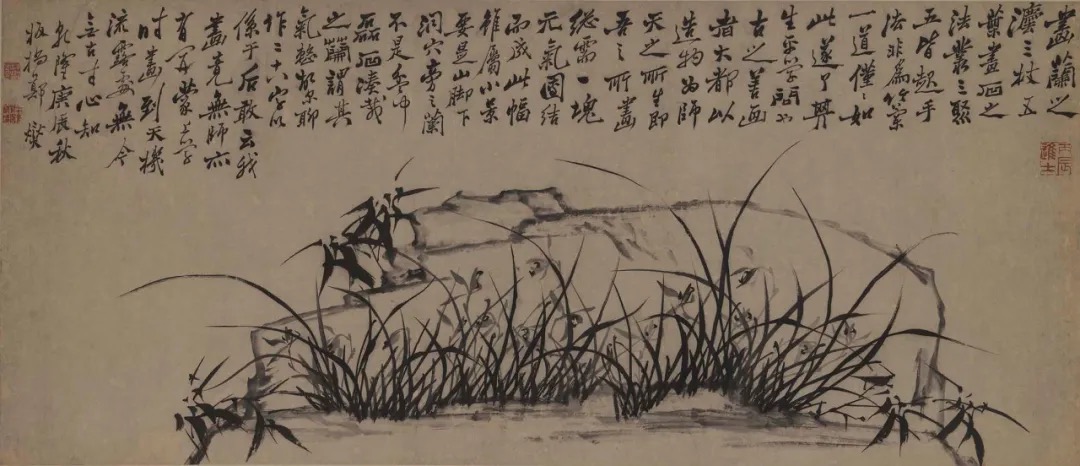 畫蘭之
灋三枝五
葉畫石之
法叢三聚
五皆起手
法非為竹蘭
一道僅〻如
此遂了其
生平學問也
古之善画
者大都以
造物為師
天之所生即
吾之所畫
總需一塊
元氣團結
而成此幅
雖屬小景
要是山脚下
洞穴旁之蘭
不是盆中
磊石湊栽
之蘭謂其
氣整故尔聊
作二十八字以
係于后敢云我
畫竟無師亦
有開蒙上學
時畫到天機
流露處無今
無古寸心知
乾隆庚辰秋
板橋鄭燮
丙辰進士